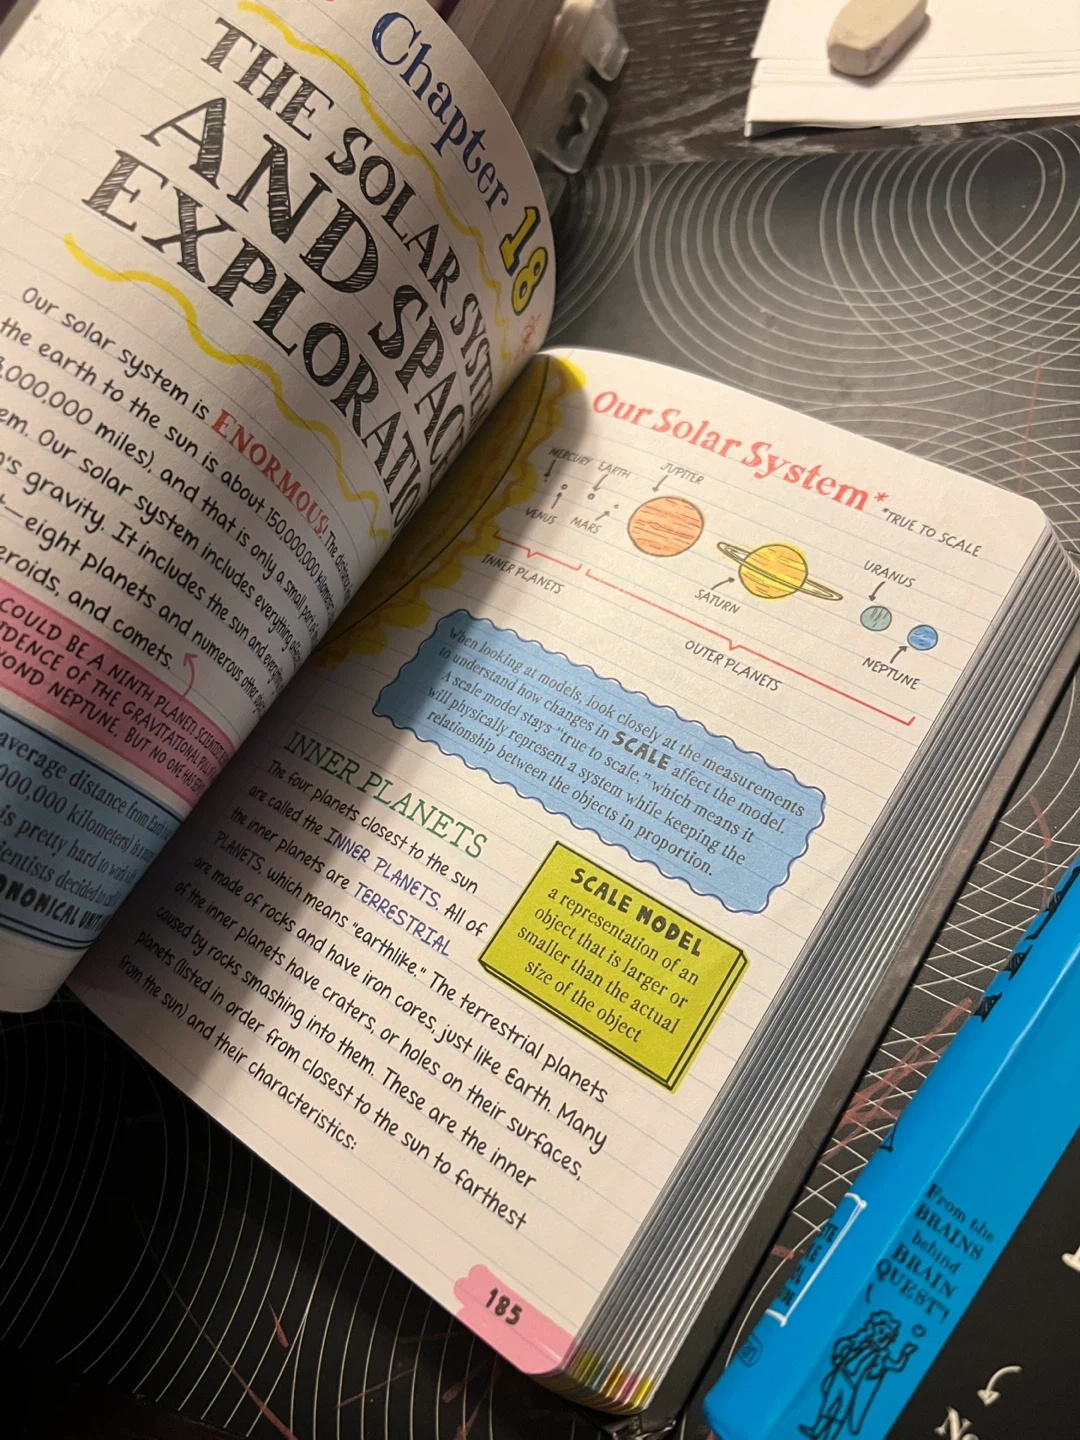 Chapter 18
THE SOLAR SYSTEM
AND SPACE
EXPLORATION
Our solar system is ENORMOUS! The
the earth to the sun is about 150,000,000
,000,000 miles), and that is only a small part of
em. Our solar system includes everything
's gravity. It includes the sun and
t—eight planets and numerous other
eroids, and comets.
COULD BE A NINTH PLANET!
IDENCE OF THE GRAVITATIONAL PULL
YOND NEPTUNE, BUT NO ONE HAS
average distance from Earth
,000,000 kilometers) is
is pretty hard to work
ientists decided to call
ONOMICAL UNIT
Our Solar System*
*TRUE TO SCALE
MERCURY
EARTH
JUPITER
VENUS
MARS
SATURN
URANUS
NEPTUNE
INNER PLANETS
OUTER PLANETS
When looking at models, look closely at the measurements
to understand how changes in SCALE affect the model.
A scale model stays "true to scale," which means it
will physically represent a system while keeping the
relationship between the objects in proportion.
INNER PLANETS
The four planets closest to the sun
are called the INNER PLANETS. All of
the inner planets are TERRESTRIAL
PLANETS, which means "earthlike." The terrestrial planets
are made of rocks and have iron cores, just like Earth. Many
of the inner planets have craters, or holes on their surfaces,
caused by rocks smashing into them. These are the inner
planets (listed in order from closest to the sun to farthest
from the sun) and their characteristics:
SCALE MODEL
a representation of an
object that is larger or
smaller than the actual
size of the object
185
From the
BRAINS
behind
BRAIN
QUEST